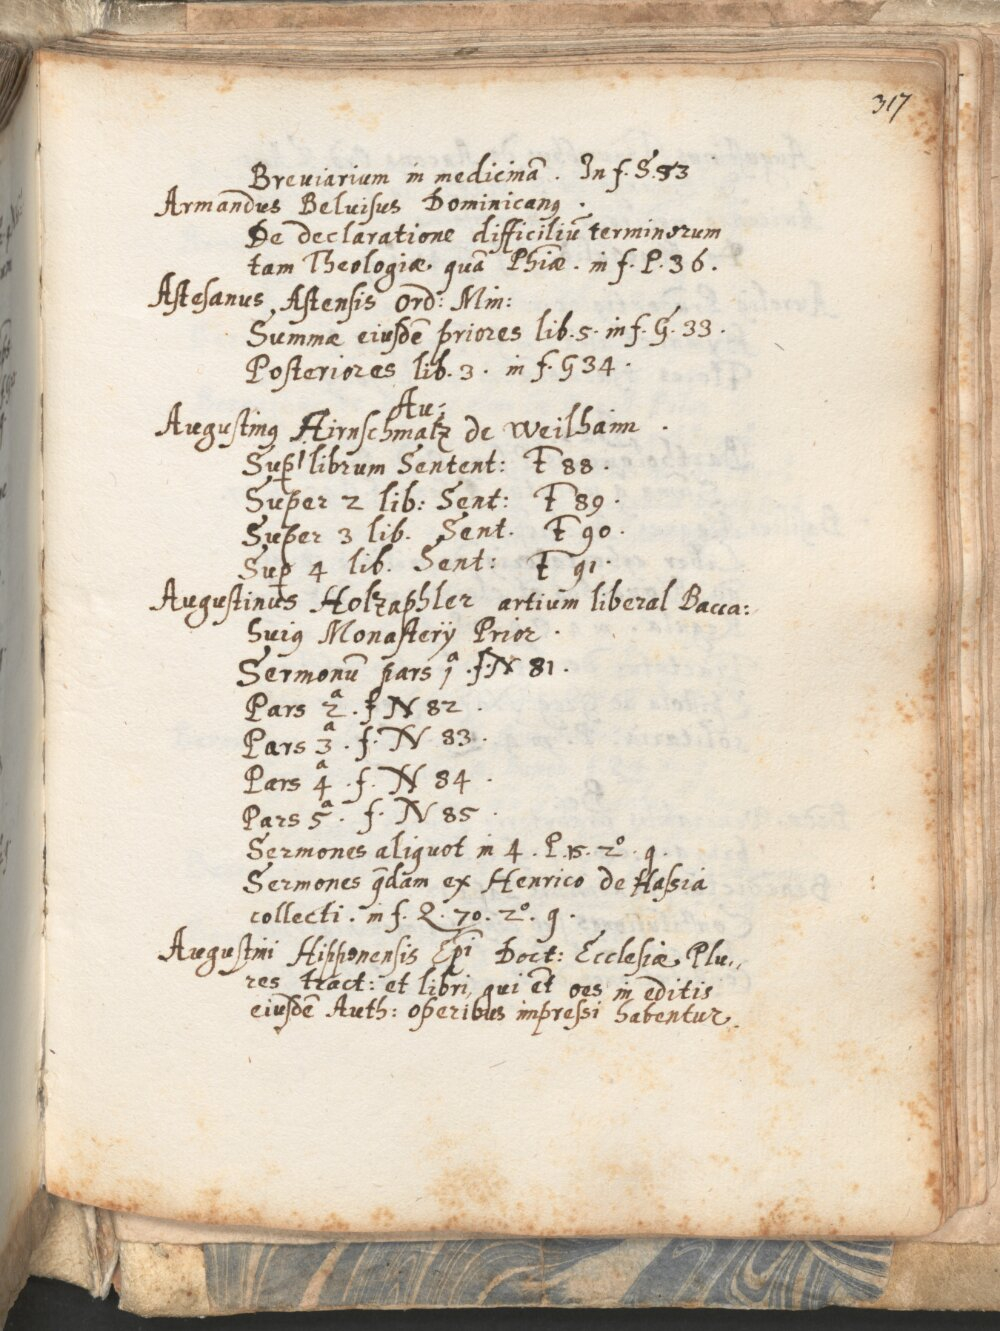 317
Breuiarium in medicinã. In f. S. 83
Armandus Beluisus Dominicanꝰ.
De declaratione difficiliũ terminorum
tam Theologiæ quã Phiæ. in f. P. 36.
Astesanus Astensis Ord: Min:
Summæ eiusdẽ priores lib. 5. in f. G. 33.
Posteriores lib. 3. in f. G 34.
Au:
Augustinꝰ Hirnschmalz de Weilhaim.
Sup 1 librum Sentent: F 88.
Super 2 lib: Sent: F 89.
Super 3 lib. Sent. F 90.
Sup 4 lib. Sent: F 91.
Augustinus Holtzaphler artium liberal Bacca:
huiꝰ Monasterÿ Prior.
Sermonũ pars 1ª. f. N 81.
Pars 2ª. f N 82.
Pars 3ª. f. N 83.
Pars 4ª. f. N 84.
Pars 5ª. f. N 85.
Sermones aliquot in 4. P. 15. 2º. 9.
Sermones q̃dam ex Henrico de Hassia
collecti. in f. Q. 70. 2º. 9.
Augustini Hipponensis Epĩ Doct: Ecclesiæ Plu,,
res tract: et libri, qui et oẽs in editis
eiusdẽ Auth: operibus impressi habentur.